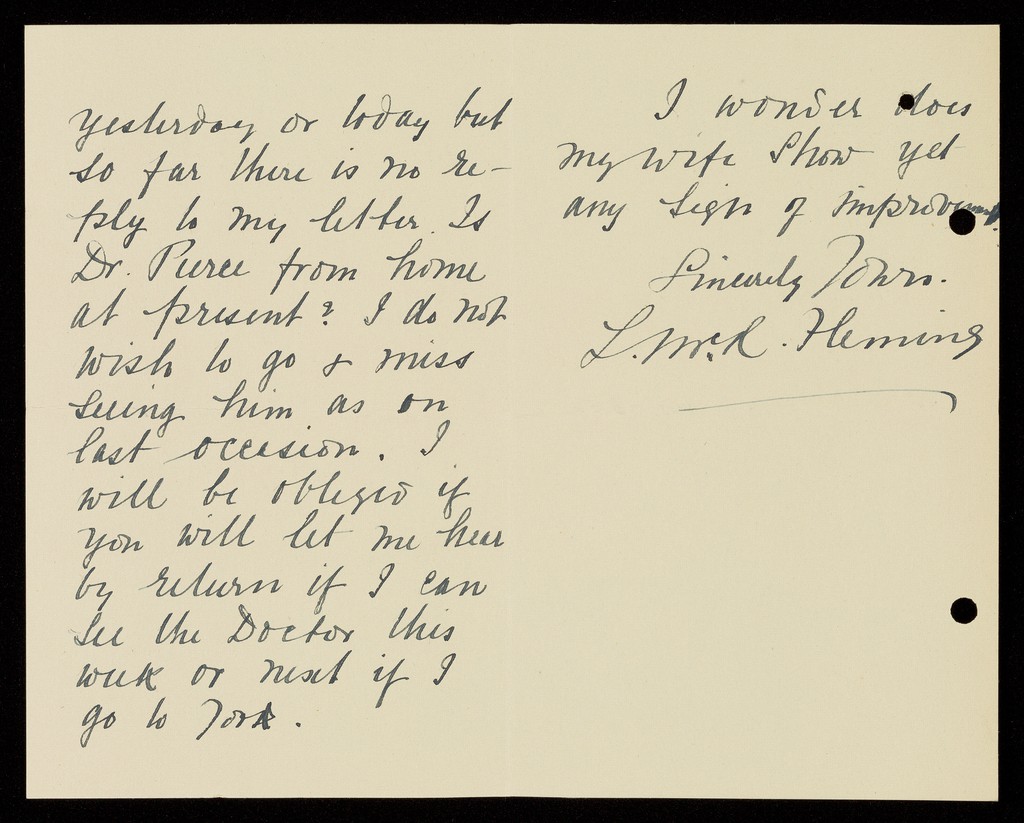 yesterday or today but
so far there is no re-
ply to my letter. Is
Dr. Pierce from home
at present? I do not
wish to go & miss
seeing him as on
last occasion. I
will be obliged if
you will let me hear
by return if I can
see the Doctor this
week or next if I
go to York.
I wonder does
my wife show yet
any sign of improvement.
Sincerely Yours.
L. McK. Fleming